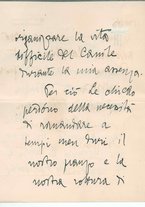 riguardare la vita
difficile del Camile
durante la mia assenza.
Per ciò le chiedo
perdono della necessità
di rimandare a
tempi men duri il
nostro pranzo e la
nostra